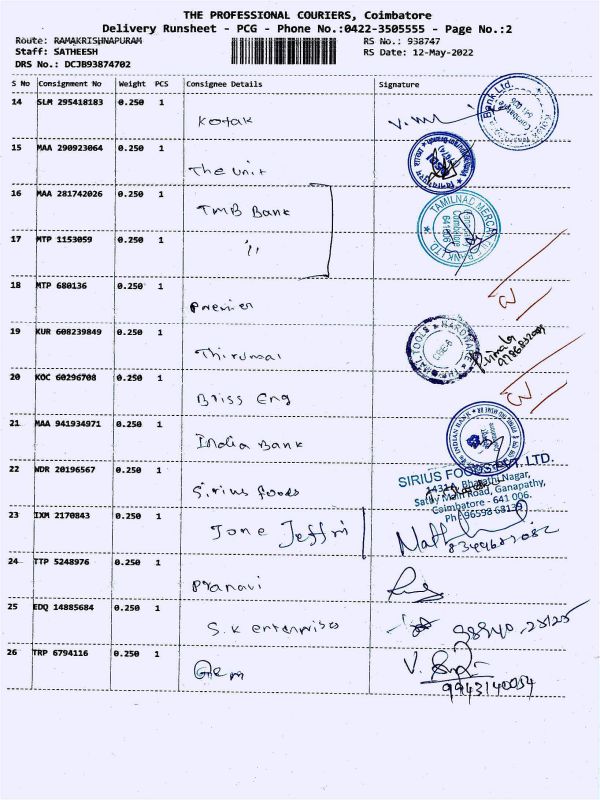 THE PROFESSIONAL COURIERS, Coimbatore
Delivery Runsheet - PCG - Phone No.:0422-3505555 - Page No.:2
Route: RAMAKRISHNAPURAM
Staff: SATHEESH
DRS No.: DCJB93874702
RS No.: 938747
RS Date: 12-May-2022
S No Consignment No Weight PCS Consignee Details Signature
14 SLM 295418183 0.250 1 Kotak
15 MAA 290923064 0.250 1 The Unit
16 MAA 281742026 0.250 1 TMB Bank
TAMILNAD MERCANTILE BANK LTD
641006
17 MTP 1153059 0.250 1 "
18 MTP 680136 0.250 1 Premier
19 KUR 608239849 0.250 1 Thirumal
TOOLS HARDWARE
20 KOC 60296708 0.250 1 Bliss Eng
21 MAA 941934971 0.250 1 India Bank
INDIAN BANK
22 WDR 20196567 0.250 1 Sirius foods
SIRIUS FOODS PVT. LTD.
Bharathi Nagar,
Sathy Main Road, Ganapathy,
Coimbatore - 641 006.
Ph : 96598 68139
23 IXM 2170843 0.250 1 Tone Jeffri
24 TTP 5248976 0.250 1 Pranavi
25 EDQ 14885684 0.250 1 S.K enterprises
26 TRP 6794116 0.250 1 Gem
9943140054